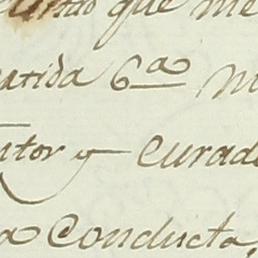 que me
atida 6ª
tor y Curad
a Conducta,